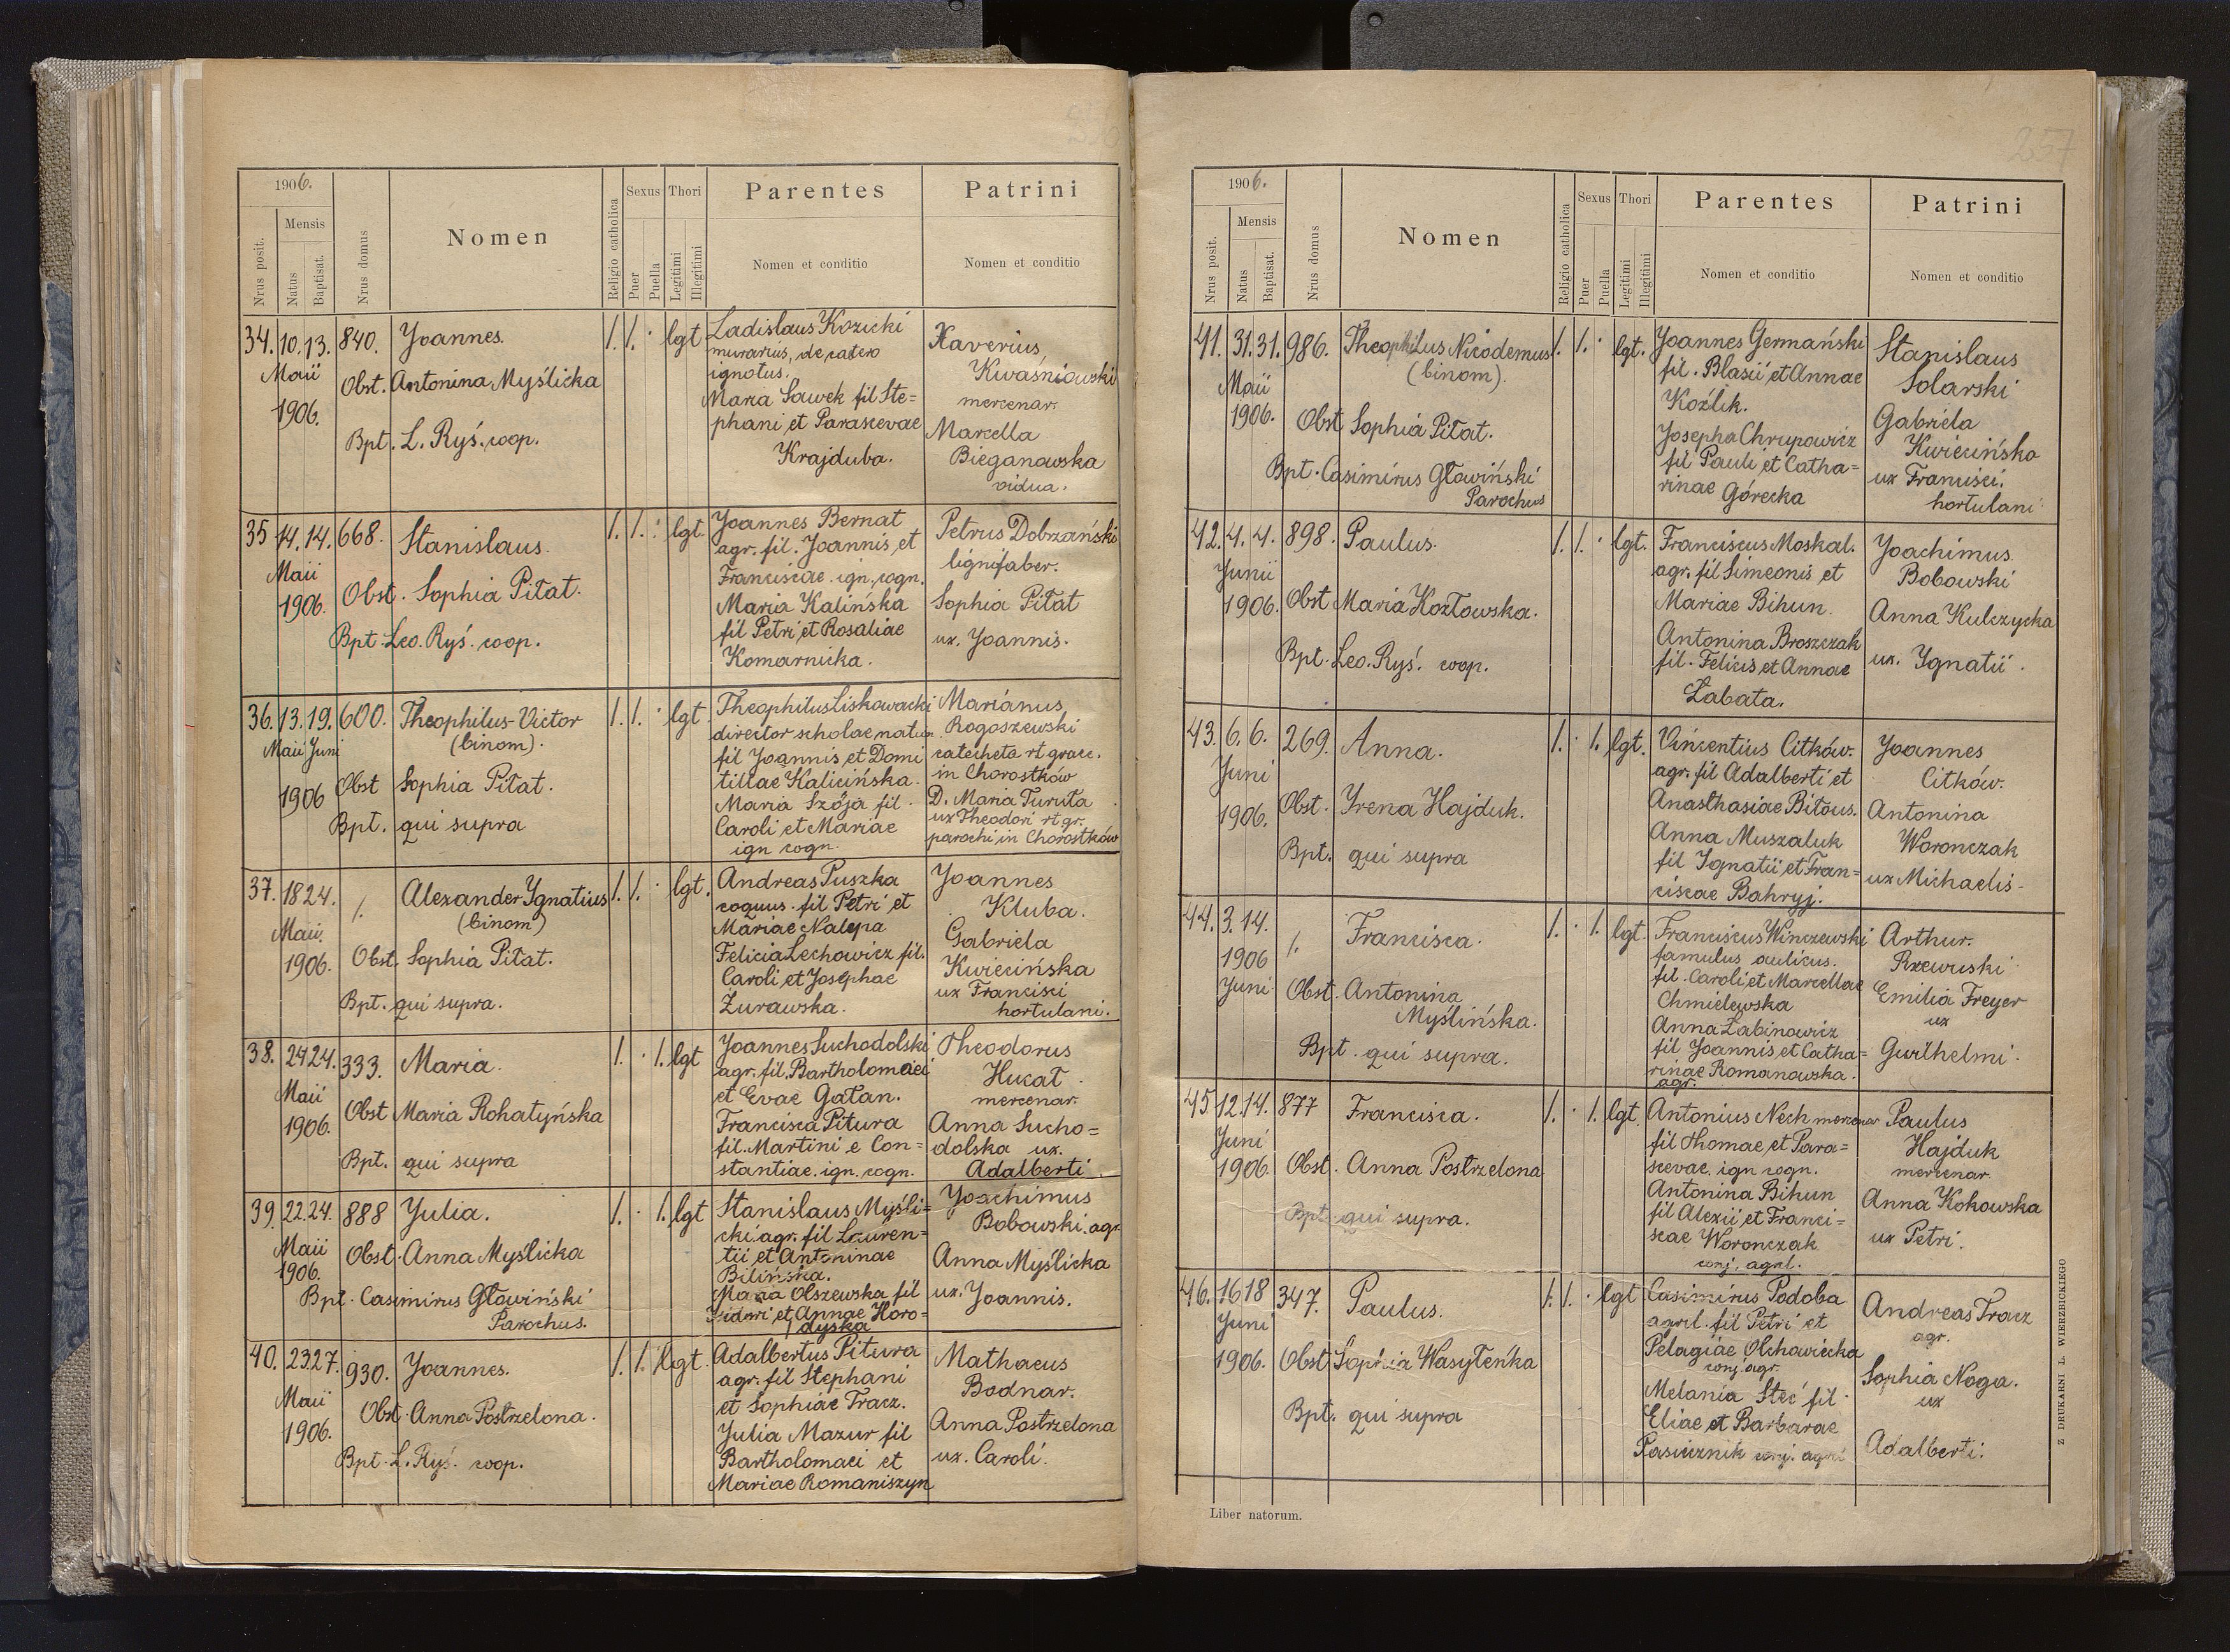 1906.
Nrus posit.
Mensis
Natus
Baptisat.
Nrus domus
Nomen
Religio catholica
Sexus
Puer
Puella
Thori
Legitimi
Illegitimi
Parentes
Nomen et conditio
Patrini
Nomen et conditio
34. 10. 13. 840. Joannes. 1. 1. · lgt
Maii
1906.
Obst. Antonina Myślicka
Bpt. L. Ryś. coop.
Ladislaus Kozicki
murarius, de catero
ignotus.
Maria Sawek fil Ste=
phani et Parascevae
Krajduba.
Xaverius
Kwaśniowski
mercenar.
Marcella
Bieganowska
vidua.
35 14. 14. 668. Stanislaus. 1. 1. · lgt.
Maii
1906.
Obst. Sophia Pitat.
Bpt. Leo. Ryś. coop.
Joannes Bernat
agr. fil. Joannis et
Franciscae. ign. cogn.
Maria Kalińska
fil Petri et Rosaliae
Komarnicka.
Petrus Dobrzański
lignifaber.
Sophia Pitat
ux. Joannis.
36. 13. 19. 600. Theophilus-Victor 1. 1. · lgt.
(binom).
Maii Juni
1906
Obst Sophia Pitat.
Bpt. qui supra
Theophilus Liskowacki
director scholae natus
fil Joannis et Domi
tillae Kalicińska.
Maria Szója fil.
Caroli et Mariae
ign cogn.
Marianus
Rogoszewski
catecheta rt graec.
in Chorostków
D. Maria Turuta
ux Theodori rt gr.
parochi in Chorostków
37. 18 24. 1. Alexander Ignatius 1. 1. · lgt.
(binom)
Maii.
1906.
Obst. Sophia Pitat.
Bpt. qui supra.
Andreas Puszka
coquus. fil Petri et
Mariae Nalepa
Felicia Lechowicz fil.
Caroli et Josephae
Żurawska.
Joannes
Kluba.
Gabriela
Kwiecińska
ux Francisci
hortulani.
38. 24 24. 333. Maria. 1. · 1. lgt
Maii
1906.
Obst Maria Rohatyńska
Bpt. qui supra
Joannes Suchodolski
agr. fil. Bartholomaei
et Evae Gatan.
Francisca Pitura
fil. Martini e Con=
stantiae. ign. cogn.
Theodorus
Hucat
mercenar.
Anna Sucho=
dolska ux.
Adalberti.
39. 22. 24. 888 Julia. 1. · 1. lgt
Maii
1906.
Obst. Anna Myślicka
Bpt. Casimirus Głowiński
Parochus.
Stanislaus Myśli=
cki agr. fil Lauren=
tii et Antoninae
Bilińska.
Maria Olszewska fil
Isidori et Annae Horo=
dyska
Joachimus
Bobowski. agr.
Anna Myślicka
ux. Joannis.
40. 23 27. 930. Joannes. 1. 1. · lgt.
Maii
1906.
Obst. Anna Postrzelona.
Bpt. L. Ryś. coop.
Adalbertus Pitura
agr. fil Stephani
et Sophiae Tracz.
Julia Mazur fil
Bartholomaei et
Mariae Romaniszyn
Mathaeus
Bodnar.
Anna Postrzelona
ux. Caroli.
257
1906.
Nrus posit.
Mensis
Natus
Baptisat.
Nrus domus
Nomen
Religio catholica
Sexus
Puer
Puella
Thori
Legitimi
Illegitimi
Parentes
Nomen et conditio
Patrini
Nomen et conditio
41. 31. 31. 986. Theophilus Nicodemus 1. 1. · lgt.
(binom).
Maii
1906.
Obst Sophia Pitat.
Bpt. Casimirus Głowiński
Parochus
Joannes Germański
fil. Blasii et Annae
Koźlik.
Josepha Chrupowicz
fil Pauli et Catha=
rinae Górecka
Stanislaus
Solarski
Gabriela
Kwiecińska
ux Francisci.
hortulani
42. 4. 4. 898. Paulus. 1. 1. · lgt.
Junii
1906.
Obst Maria Kozłowska.
Bpt. Leo. Ryś. coop.
Franciscus Moskal.
agr. fil Simeonis et
Mariae Bihun.
Antonina Broszczak
fil. Felicis et Annae
Łabata.
Joachimus
Bobowski
Anna Kulczycka
ux. Ignatii.
43. 6. 6. 269. Anna. 1. · 1. lgt.
Juni
1906.
Obst. Irena Hajduk.
Bpt. qui supra
Vincentius Citków.
agr. fil Adalberti et
Anasthasiae Bitous.
Anna Muszaluk
fil Ignatii et Fran=
ciscae Bahryj.
Joannes
Citków.
Antonina
Woronczak
ux Michaelis-
44. 3. 14. 1. Francisca. 1. · 1. lgt.
1906
Juni
Obst. Antonina
Myślińska.
Bpt. qui supra.
Franciscus Winczewski
famulus aulicus.
fil. Caroli et Marcellae
Chmielewska
Anna Żabinowicz
fil Joannis et Catha=
rinae Romanowska.
agr.
Arthur.
Rzewuski
Emilia Freyer
ux
Gwilhelmi.
45 12. 14. 877 Francisca. 1. · 1. lgt.
Juni
1906.
Obst. Anna Postrzelona
Bpt. qui supra.
Antonius Nech mercenar
fil Thomae et Para=
scevae. ign cogn.
Antonina Bihun
fil Alexii et Franci=
scae Woronczak
conj. agrl.
Paulus
Hajduk
mercenar.
Anna Kokowska
ux Petri.
46. 16 18 347. Paulus. 1. 1. · lgt
Juni
1906.
Obst. Sophia Wasyleńka
Bpt. qui supra
Casimirus Podoba
agrel. fil Petri et
Pelagiae Olchowiecka
conj. agr.
Melania Steć fil.
Eliae et Barbarae
Pasiecznik conj. agrl
Andreas Tracz
agr.
Sophia Noga.
ux
Adalberti.
Liber natorum.
Z DRUKARNI L. WIERZBICKIEGO